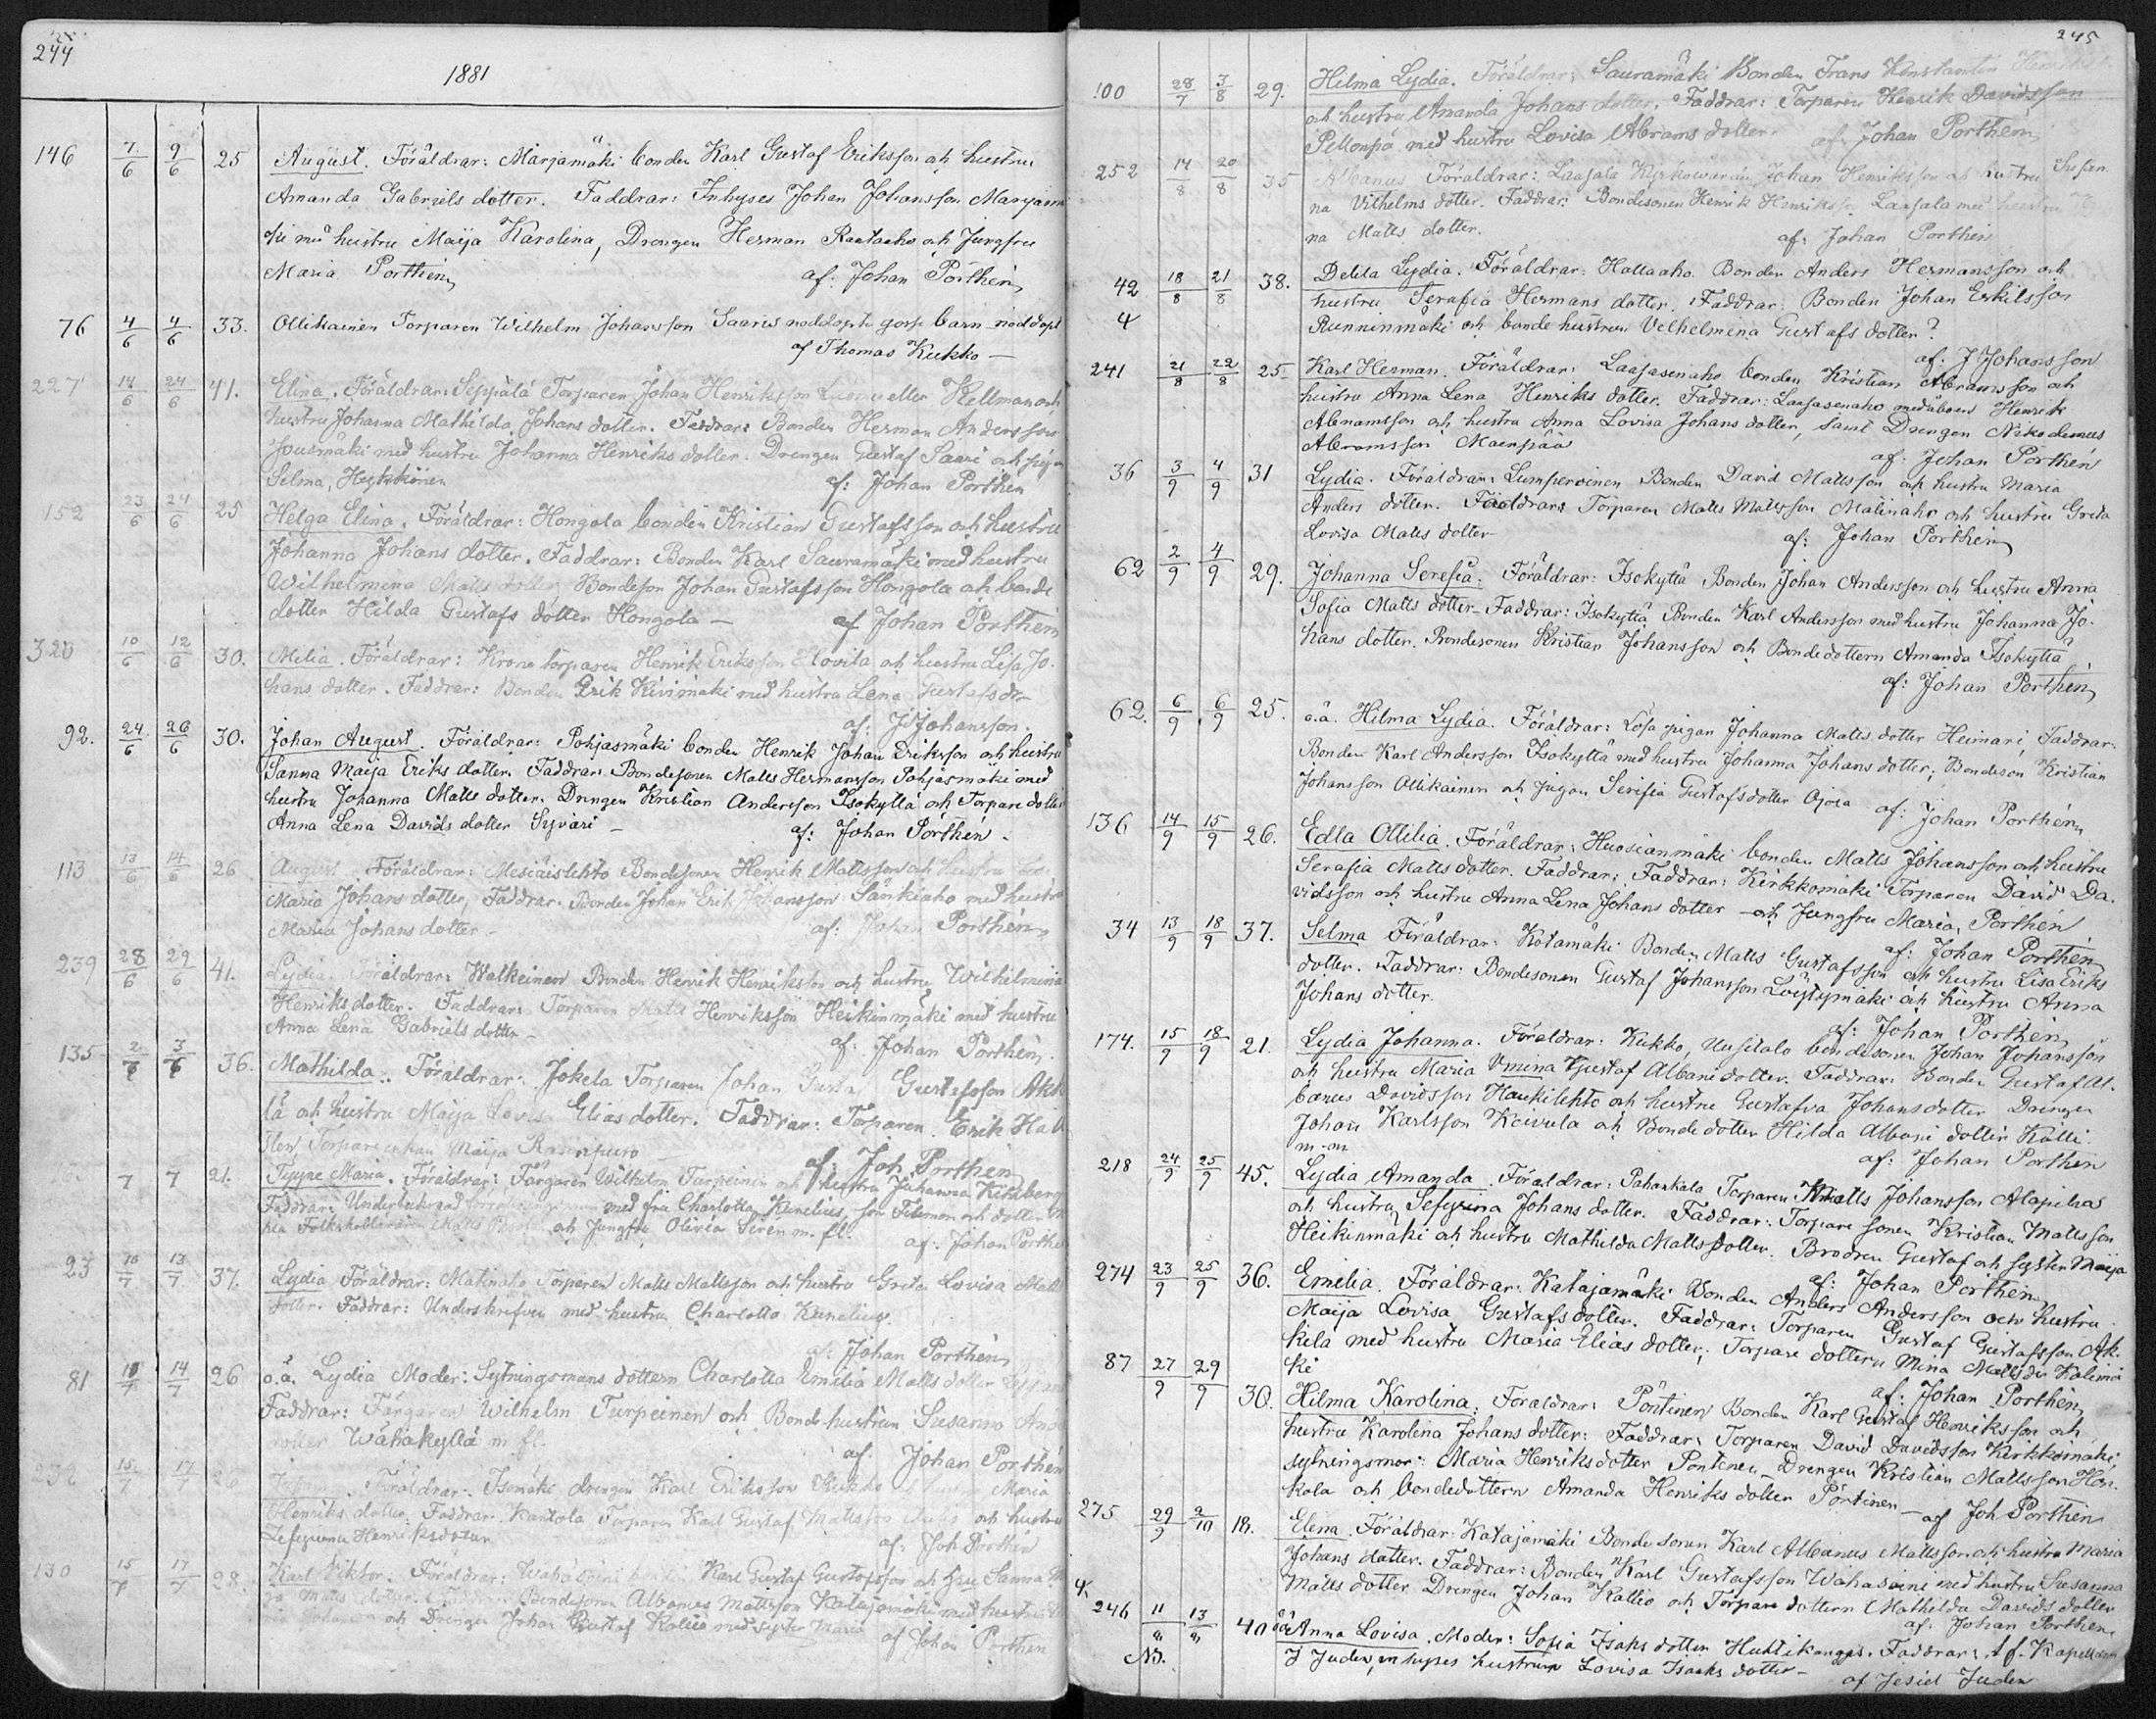 244
1881
146 7/6 9/6 25 August. Föräldrar: Marjamäki bonden Karl Gustaf Eriksson och hustru
Amanda Gabriels dotter. Faddrar: Inhyses Johan Johansson Marjam
ki med hustru Maija Karolina, Drengen Herman Rautaaho och Jungfru
Maria Porthén af: Johan Porthén
76 4/6 4/6 33. Ollikainen Torparen Wilhelm Johansson Saaris noddöpte gosse barn noddöpt
af Thomas Kukko —
227 14/6 24/6 41. Elina. Föräldrar: Seppälä Torparen Johan Henriksson Luomo eller Kellman och
hustru Johanna Mathilda Johans dotter. Faddrar: Bonden Herman Andersson
Jousmäki med hustru Johanna Henriks dotter. Drengen Gustaf Saari och pigan
Selma af: Johan Porthén
152 23/6 24/6 25 Helga Elina. Föräldrar: Hongola bonden Kristian Gustafsson och hustru
Johanna Johans dotter. Faddrar: Bonden Karl Sauramäki med hustru
Wilhelmina Matts dotter, Bondeson Johan Gustafsson Hongola och bonde
dotter Hilda Gustafs dotter Hongola — af Johan Porthén
320 10/6 12/6 30. Milia. Föräldrar: Krono torparen Henrik Eriksson Elovita och hustru Lisa Jo.
hans dotter. Faddrar: Bonden Erik Kivimäki med hustru Lena Gustafs dr—
af: J Johansson.
92. 24/6 26/6 30. Johan August. Föräldrar: Pohjasmäki bonden Henrik Johan Eriksson och hustru
Sanna Maija Eriks dotter. Faddrar: Bondesonen Matts Hermansson Pohjasmäki med
hustru Johanna Matts dotter. Drengen Kristian Andersson Isokyttä och Torpare dotter
Anna Lena Davids dotter Syväri — af: Johan Porthén.
113 13/6 14/6 26 August. Föräldrar: Mesiäislehto Bondesonen Henrik Mattsson och hustru
Maria Johans dotter, Faddrar. Bonden Johan Erik Johansson Särkiaho med hustru
Maria Johans dotter — af: Johan Porthén
239 28/6 29/6 41. Lydia. Föräldrar: Walkeinen Bonden Henrik Henriksson och hustru Wilhelmina
Henriks dotter. Faddrar: Torparen Matts Henriksson Heikinmäki med hustru
Anna Lena Gabriels dotter — af: Johan Porthén.
135 2/6 3/6 36. Mathilda. Föräldrar: Jokela Torparen Johan Gusta Gustafsson Akki
lä och hustru Maija Lovisa Elias dotter. Faddrar: Torparen Erik
Torpare enkan Maija af Joh Porthen
7 7 21. Tyyne Maria. Föräldrar: Färgaren Wilhelm Turpeinen och hustru Johanna Kihlberg
Faddrar: Undertecknad med fru Charlotta Kunelius, son Filemon och dotter
och Jungfru Olivia Siren m. fl. af: Johan Porthe
23 10/7 13/7 37. Lydia Föräldrar: Matinaho Torparen Matts Mattsson och hustru Greta Lovisa Matts
dotter. Faddrar: Underskrifven med hustru Charlotta Kunelius.
af: Johan Porthén
81 10/7 14/7 26 o.ä. Lydia Moder: Sytningsmans dottern Charlotta Emilia Matts dotter
Faddrar: Färgaren Wilhelm Turpeinen och Bonde hustrun Susanna
dotter Wähäkyttä m fl. af. Johan Porthén
232 15/7 17/7 26 Föräldrar. Isomäki drengen Karl Eriksson Kukko hustru Maria
Henriks dotter. Faddrar. Kantola Torparen Karl Gustaf Mattsson och hustru
Sefeprina Henriksdotter af: Joh Porthén
130 15/7 17/7 28. Karl Viktor. Föräldrar: Karl Gustaf Gustafsson och hru Sanna
Matts dotter. Faddrar. Bondesonen Albanus Mattsson Katajamäki med hustru
Johan och Drengen Johan Gustaf Kallio med syster Maria
af Johan Porthen
245
100 28/7 7/8 29. Hilma Lydia. Föräldrar: Sauramäki Bonden Frans Konstantin
och hustru Amanda Johans dotter. Faddrar: Torparen Henrik Davidsson
Pellonpä med hustru Lovisa Abrams dotter. af: Johan Porthén
252 14/8 20/8 35 Albanus Föräldrar: Laajala Kyrkowärden Johan Henriksson och hustru Susan.
na Vilhelms dotter. Faddrar: Bondesonen Henrik Henriksson Laajala med hustru
na Matts dotter. af: Johan Porthén
42 18/8 21/8 38. Delila Lydia. Föräldrar: Hallaaho Bonden Anders Hermansson och
hustru Serafia Hermans dotter. Faddrar: Bonden Johan Erkilsson
4 Runninmäki och bonde hustrun Velhelmena Gustafs dotter?
af: J Johansson
241 21/8 22/8 25 Karl Herman. Föräldrar: Laajasenaho bonden Kristian Abramsson och
hustru Anna Lena Henriks dotter. Faddrar: Laajasenaho medåboen Henrik
Abramsson och hustru Anna Lovisa Johans dotter, samt Drengen Nikodemus
Abramsson Maenpää af: Johan Porthén
36 3/9 4/9 31 Lydia. Föräldrar: Lumperoinen Bonden David Mattsson och hustru Maria
Anders dotter. Faddrar: Torparen Matts Mattsson Matinaho och hustru Greta
Lovisa Matts dotter— af: Johan Porthén
62 2/9 4/9 29. Johanna Serefia. Föräldrar: Isokyttä Bonden Johan Andersson och hustru Anna
Sofia Matts dotter— Faddrar: Isokyttä Bonden Karl Andersson med hustru Johanna Jo.
hans dotter. Bondesonen Kristian Johansson och Bondedottern Amanda Isokyttä
af: Johan Porthén
62. 6/9 6/9 25. o.ä. Hilma Lydia. Föräldrar: Lösa pigan Johanna Matts dotter Heimari, Faddrar:
Bonden Karl Andersson Isokyttä med hustru Johanna Johans dotter; Bondeson Kristian
Johansson Ollikainen och pigan Serifia Gustafsdotter Ojoia af: Johan Porthén
136 14/9 15/9 26. Edla Ottilia. Föräldrar: Huosianmäki bonden Matts Johansson och hustru
Serafia Matts dotter. Faddrar: Faddrar: Kirkkomäki Torparen David Da.
vidsson och hustru Anna Lena Johans dotter — och Jungfru Maria Porthén
af: Johan Porthén
34 13/9 18/9 37. Selma Föräldrar: Kotamäki Bonden Matts Gustafsson och hustru Lisa Eriks
dotter. Faddrar: Bondesonen Gustaf Johansson Löytymäki och hustru Anna
Johans dotter. af: Johan Porthen
174. 15/9 18/9 21. Lydia Johanna. Föräldrar: Kukko, Uusitalo bondesonen Johan Johansson
och hustru Maria Vmina Gustaf Albanidotter. Faddrar: Bonden Gustaf Al.
banus Davidsson Haukilehto och hustru Gustafva Johansdotter Drengen
Johan Karlsson Koivula och Bonde dotter Hilda Albani dotter Källi.
m-m af: Johan Porthén
218 24/9 25/9 45. Lydia Amanda. Föräldrar: Pahankala Torparen Matts Johansson Alapiha
och hustru Sefyrina Johans dotter. Faddrar: Torpare sonen Kristian Mattsson
Heikinmäki och hustru Mathilda Matts dotter. Brodren Gustaf och syster Maija
af: Johan Porthén
274 23/9 25/9 36. Emelia. Föräldrar: Katajamäki Bonden Anders Andersson och hustru
Maija Lovisa Gustafs dotter. Faddrar: Torparen Gustaf Gustafsson Ak.
kila med hustru Maria Elias dotter; Torpare dottern Mina Matts dr Kalimä
ki af: Johan Porthén
87 27/9 29/9 30. Hilma Karolina. Föräldrar: Pöntinen Bonden Karl Gustaf Henriksson och
hustru Karolina Johans dotter: Faddrar: Torparen David Davidsson Kirkkomäki;
sytningsmor: Maria Henriksdotter Pöntinen — Drengen Kristian Mattsson Hon.
kala och bondedottern Amanda Henriks dotter Pöntinen — af Joh Porthén
275 29/9 2/10 18. Elina. Föräldrar: Katajamäki Bondesonen Karl Albanus Mattsson och hustru Maria
Johans dotter. Faddrar: Bonden Karl Gustafsson Wahasoini med hustru Susanna
Matts dotter Drengen Johan Kallio och Torpare dottern Mathilda Davids dotter
af: Johan Porthén
246 11 13 40 oä Anna Lovisa. Moder: Sofia Isaks dotter Huttikangas. Faddrar: t.f. Kapellan
NB. J Juden, inhyses hustrun Lovisa Isaaks dotter—
af Jesiel Juden